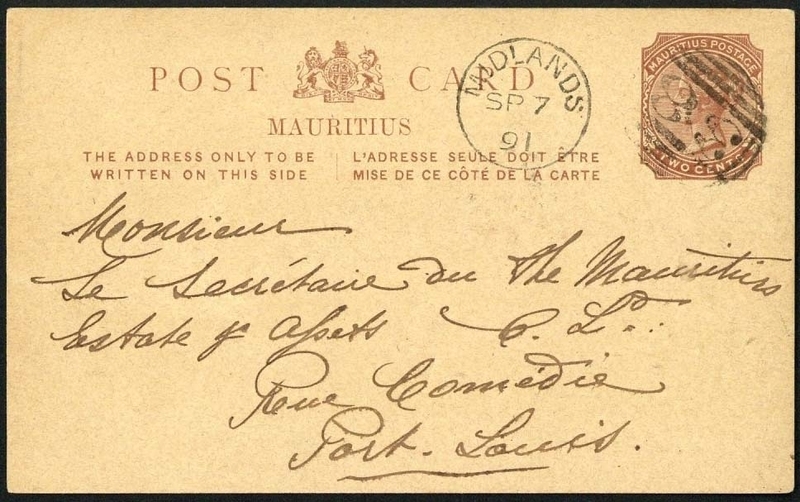 POST CARD
MAURITIUS
THE ADDRESS ONLY TO BE WRITTEN ON THIS SIDE
L'ADRESSE SEULE DOIT ÊTRE MISE DE CE CÔTÉ DE LA CARTE
MIDLANDS
SP 7
91
MAURITIUS POSTAGE
TWO CENTS
Monsieur
Le Secrétaire du The Mauritius
Estate & Assets C. Ld.
Rue Comédie
Port-Louis.